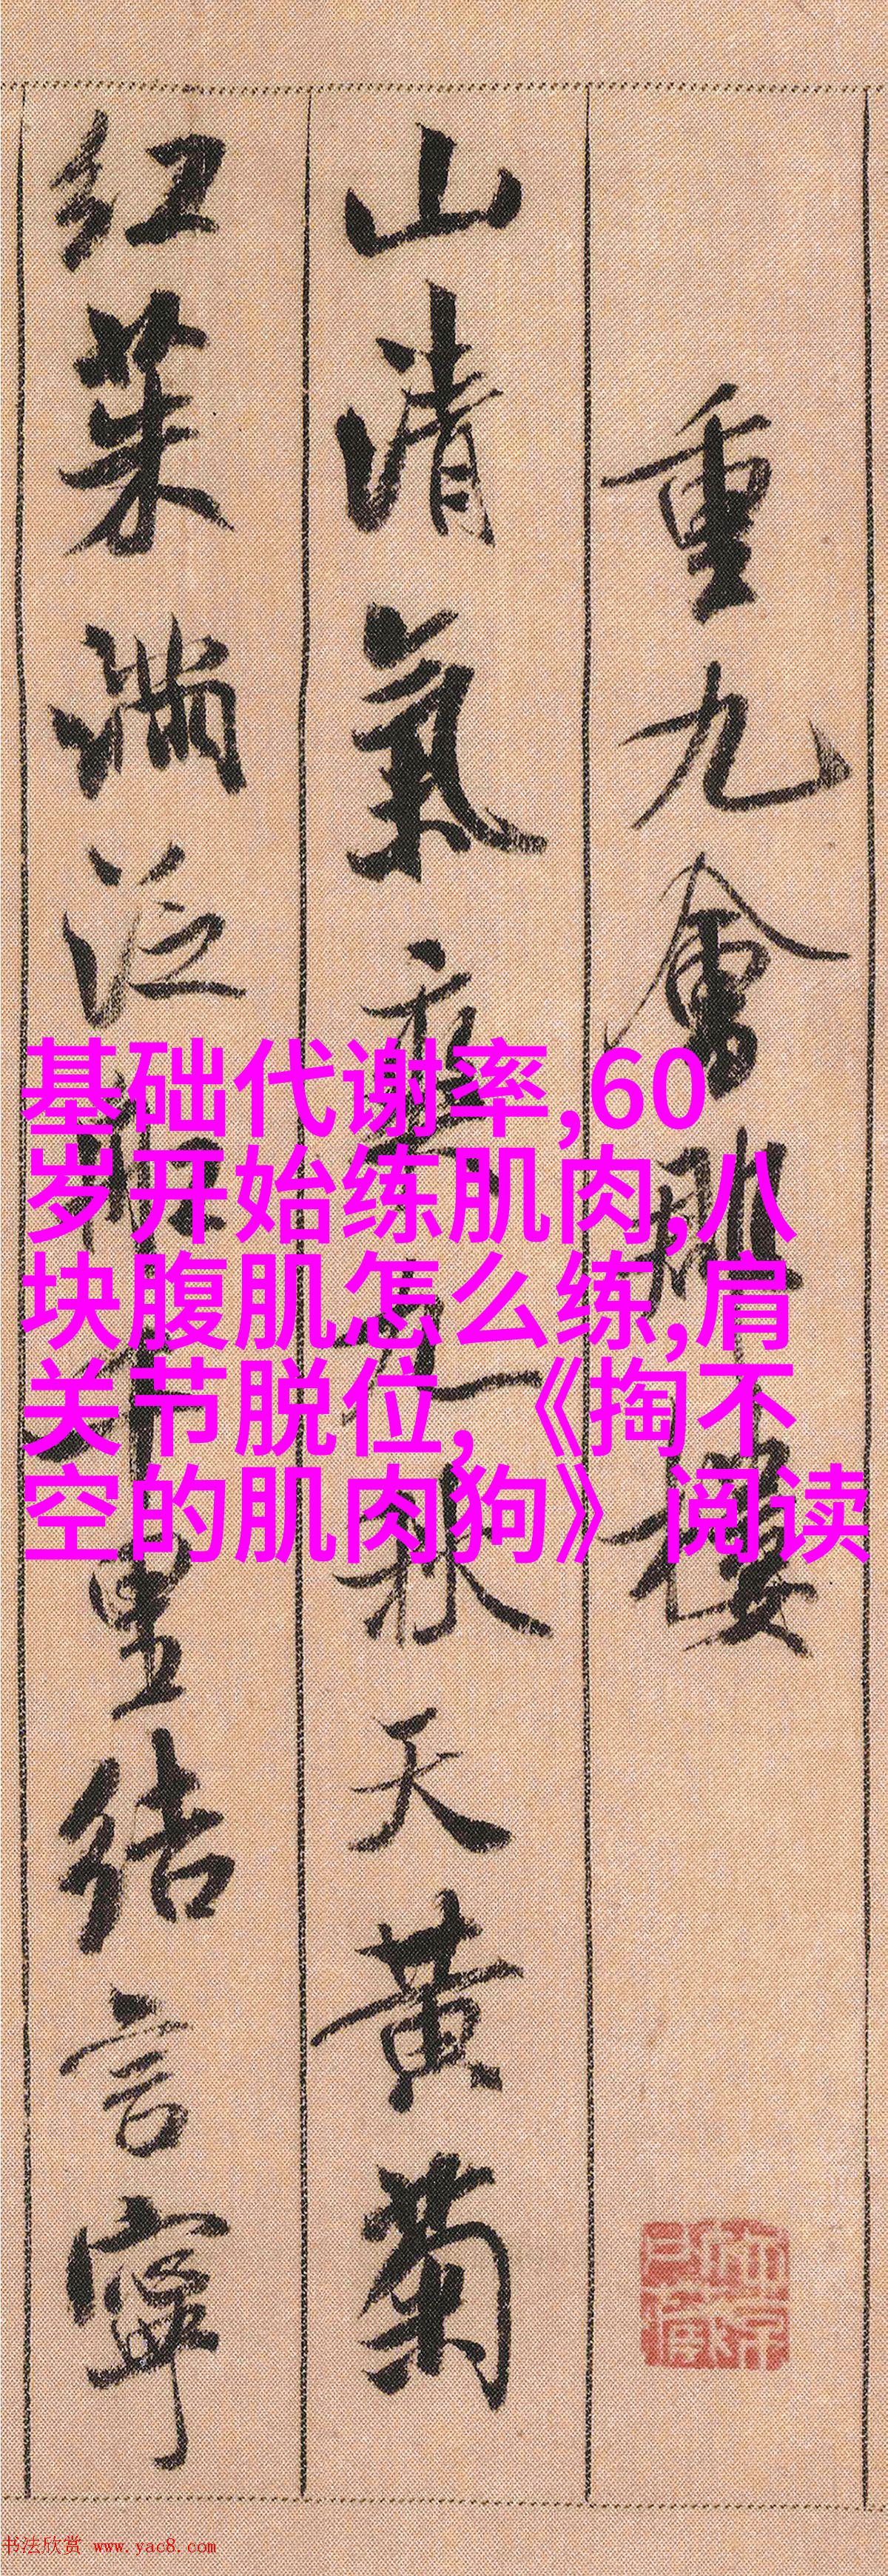 重九會郡樓
山清氣爽九秋天黃菊
紅茱滿泛船千里結言寧
基础代谢率,60
岁开始练肌肉,八
块腹肌怎么练,肩
关节脱位,《掏不
空的肌肉狗》阅读
书法欣赏 www.yac8.com